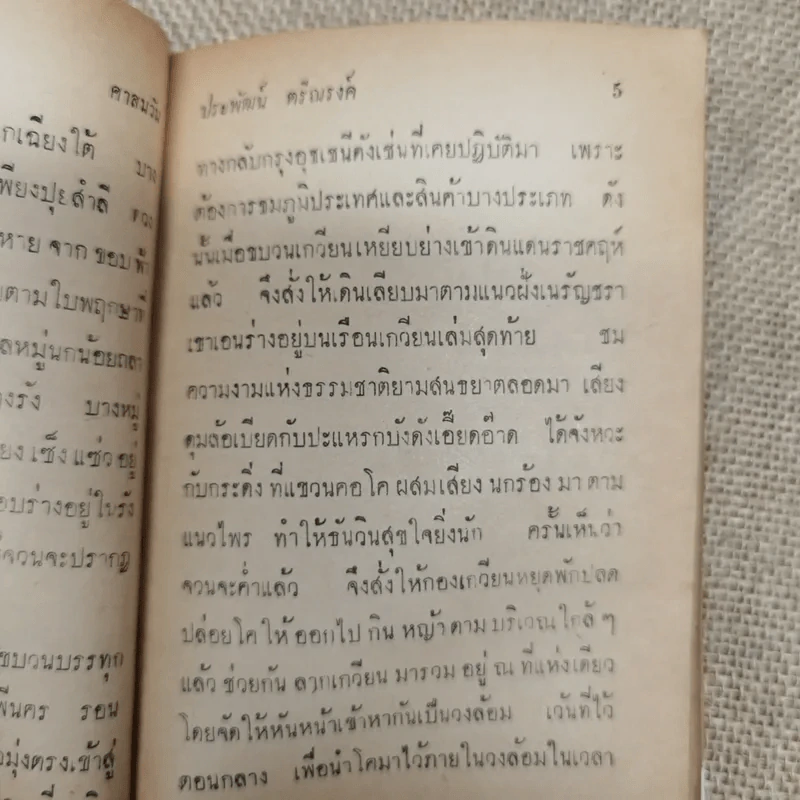 ศาสนวัน
กเฉียงใต้ บาง
พียงปุยสำลี ดวง
หาย จาก ขอบ ฟ้า
ตามใบพฤกษาที่
ลหมู่นกน้อยถลา
งรัง บางหมู่
ยง เซ็ง แซ่ว อยู่
อบร่างอยู่ในรัง
จวนจะปรากฏ
ขบวนบรรทุก
พีนคร รอน
มุ่งตรงเข้าสู่
ประพัฒน์ ตรีณรงค์ 5
ทางกลับกรุงอุชเชนีดังเช่นที่เคยปฏิบัติมา เพราะ
ต้องการชมภูมิประเทศและสินค้าบางประเภท ดัง
นั้นเมื่อขบวนเกวียนเหยียบย่างเข้าดินแดนราชคฤห์
แล้ว จึงสั่งให้เดินเลียบมาตามแนวฝั่งเนรัญชรา
เขาเอนร่างอยู่บนเรือนเกวียนเล่มสุดท้าย ชม
ความงามแห่งธรรมชาติยามสนธยาตลอดมา เสียง
ดุมล้อเบียดกับปะแหรกบังดังเอี๊ยดอ๊าด ได้จังหวะ
กับกระดิ่ง ที่แขวนคอ โค ผสมเสียง นกร้อง มา ตาม
แนวไพร ทำให้ธันวินสุขใจยิ่งนัก ครั้นเห็นว่า
จวนจะค่ำแล้ว จึงสั่งให้กองเกวียนหยุดพักปลด
ปล่อยโค ให้ ออกไป กิน หญ้า ตาม บริเวณ ใกล้ ๆ
แล้ว ช่วยกัน ลากเกวียน มารวม อยู่ ณ ที่แห่งเดียว
โดยจัดให้หันหน้าเข้าหากันเป็นวงล้อม เว้นที่ไว้
ตอนกลาง เพื่อนำโคมาไว้ภายในวงล้อมในเวลา